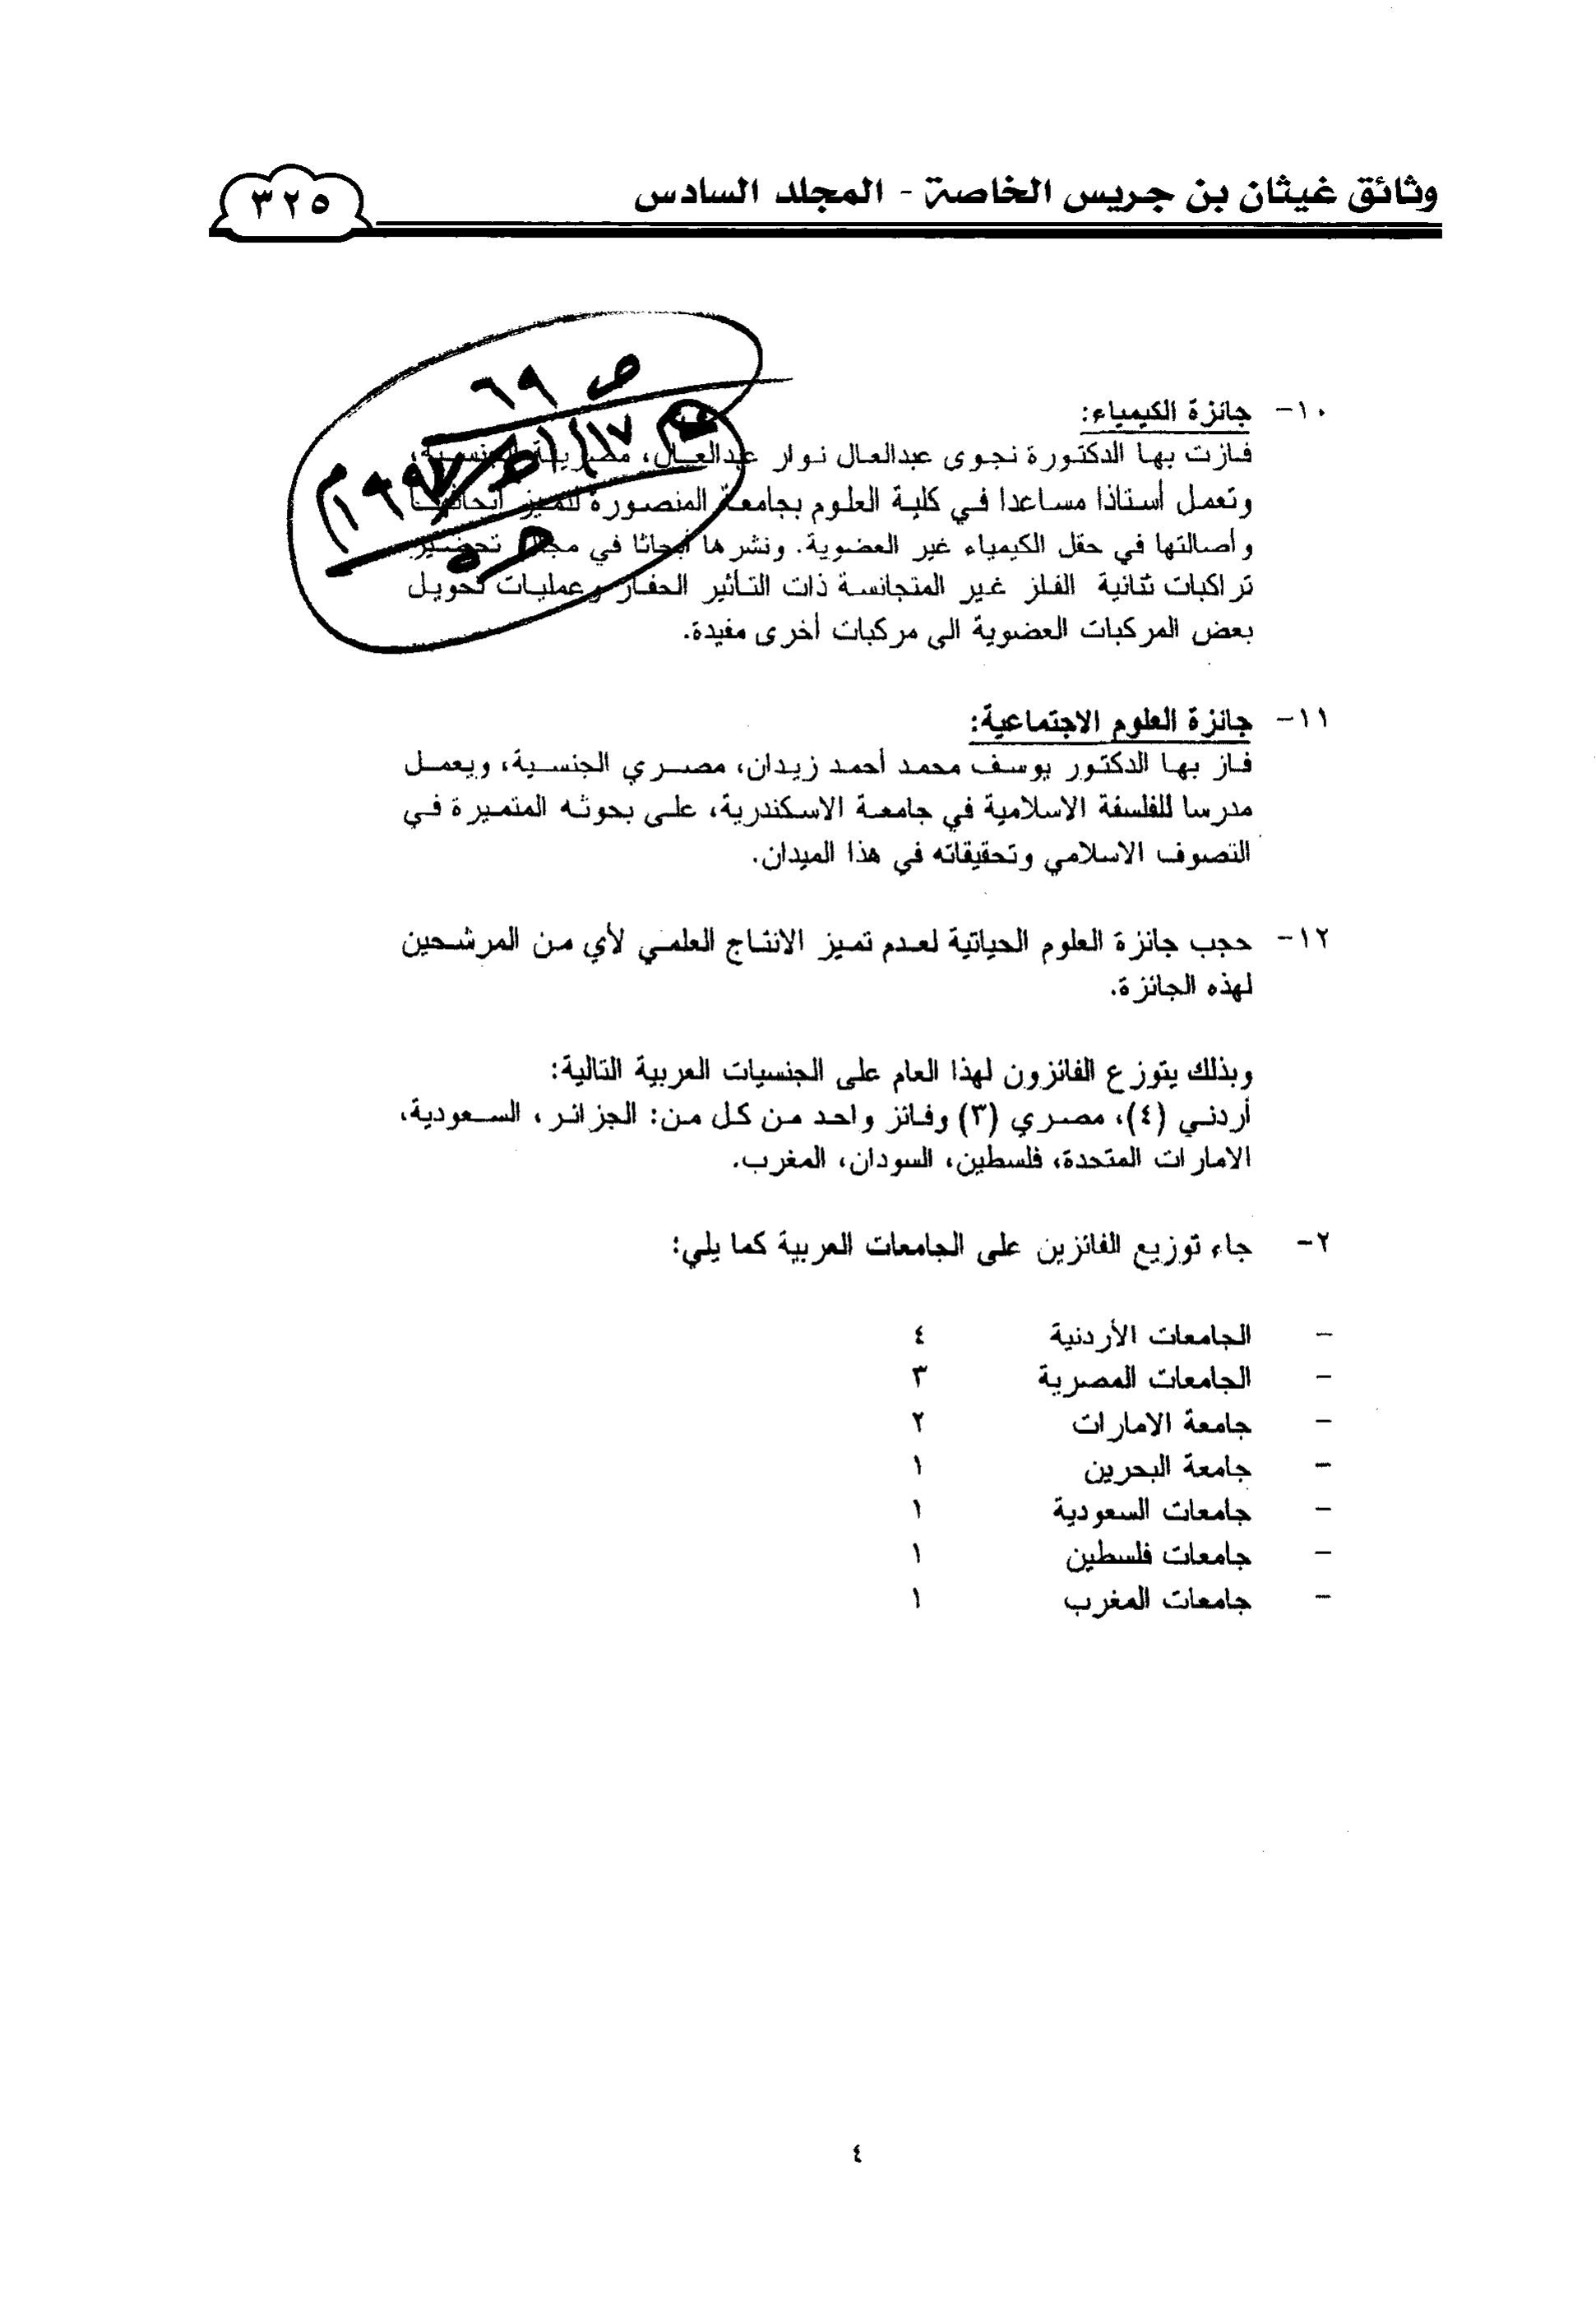 وثائق غيثان بن جريس الخاصة - المجلد السادس
٣٢٥
ص ٦٩
١٩٩٧م
١٠- جائزة الكيمياء:
فازت بها الدكتورة نجوى عبدالعال نوار عبدالعال، مصرية الجنسية،
وتعمل أستاذا مساعدا في كلية العلوم بجامعة المنصورة لتميز أبحاثها
وأصالتها في حقل الكيمياء غير العضوية. ونشرها أبحاثا في مجال تحضير
تراكبات ثنائية الفلز غير المتجانسة ذات التأثير الحفاز وعمليات تحويل
بعض المركبات العضوية الى مركبات أخرى مفيدة.
١١- جائزة العلوم الاجتماعية:
فاز بها الدكتور يوسف محمد أحمد زيدان، مصري الجنسية، ويعمل
مدرسا للفلسفة الاسلامية في جامعة الاسكندرية، على بحوثه المتميزة في
التصوف الاسلامي وتحقيقاته في هذا الميدان.
١٢- حجب جائزة العلوم الحياتية لعدم تميز الانتاج العلمي لأي من المرشحين
لهذه الجائزة.
وبذلك يتوزع الفائزون لهذا العام على الجنسيات العربية التالية:
أردني (٤)، مصري (٣) وفائز واحد من كل من: الجزائر، السعودية،
الامارات المتحدة، فلسطين، السودان، المغرب.
٢- جاء توزيع الفائزين على الجامعات العربية كما يلي:
- الجامعات الأردنية ٤
- الجامعات المصرية ٣
- جامعة الامارات ٢
- جامعة البحرين ١
- جامعات السعودية ١
- جامعات فلسطين ١
- جامعات المغرب ١
٤